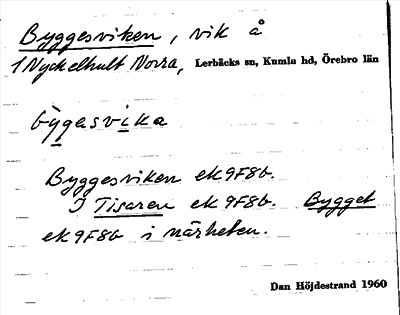 Byggesviken, vik å
1 Nyckelhult Norra, Lerbäcks sn, Kumla hd, Örebro län
bỳgasvika
Byggesviken ek 9F8b.
I Tisaren ek 9F8b. Bygget
ek 9F8b i närheten.
Dan Höjdestrand 1960